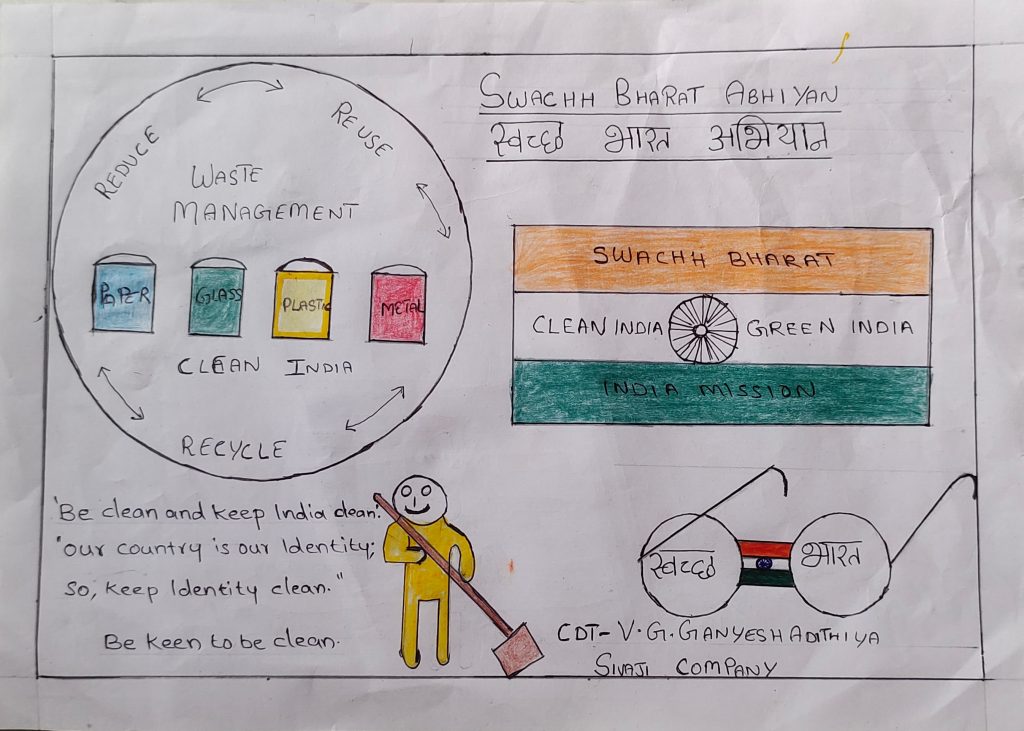 SWACHH BHARAT ABHIYAN
स्वच्छ भारत अभियान
REDUCE
REUSE
WASTE
MANAGEMENT
PAPER
GLASS
PLASTIC
METAL
CLEAN INDIA
RECYCLE
SWACHH BHARAT
CLEAN INDIA GREEN INDIA
INDIA MISSION
'Be clean and keep India clean'.
"Our country is our Identity;
So, keep Identity clean."
Be keen to be clean.
स्वच्छ भारत
CDT- V.G.GANYESH ADITHIYA
SIVAJI COMPANY